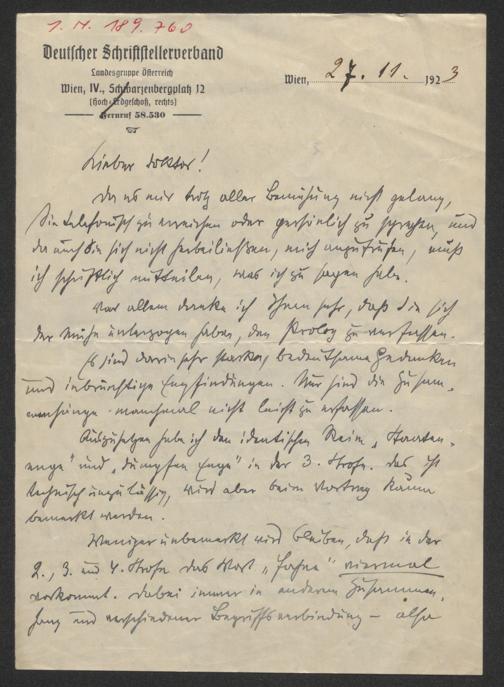 1. N. 189.760
Deutscher Schriftstellerverband
Landesgruppe Österreich
Wien, IV., Schwarzenbergplatz 12
(Hoch-Erdgeschoß, rechts)
Fernruf 58.530
Wien, 27. 11. 1923
Lieber Doktor!
Da es mir trotz aller Bemühung nicht gelang,
Sie telefonisch zu erreichen oder persönlich zu sprechen, und
da auch Sie sich nicht herbeiließen, mich anzurufen, muß
ich schriftlich mitteilen, was ich zu sagen habe.
Vor allem danke ich Ihnen sehr, daß Sie sich
der Mühe unterzogen haben, den Prolog zu verfassen.
Es sind darin sehr starke, bedeutsame Gedanken
und inbrünstige Empfindungen. Nur sind die Zusam-
menhänge manchmal nicht leicht zu erfassen.
Auszusetzen habe ich den identischen Reim „
enge" und „dumpfen Enge" in der 3. Strofe. Das ist
technisch unzulässig, wird aber beim Vortrag kaum
bemerkt werden.
Weniger unbemerkt wird bleiben, daß in der
2., 3. und 4. Strofe das Wort „Fahne" viermal
vorkommt. Dabei immer in anderem Zusammen-
hang und verschiedener Begriffsverbindung – also